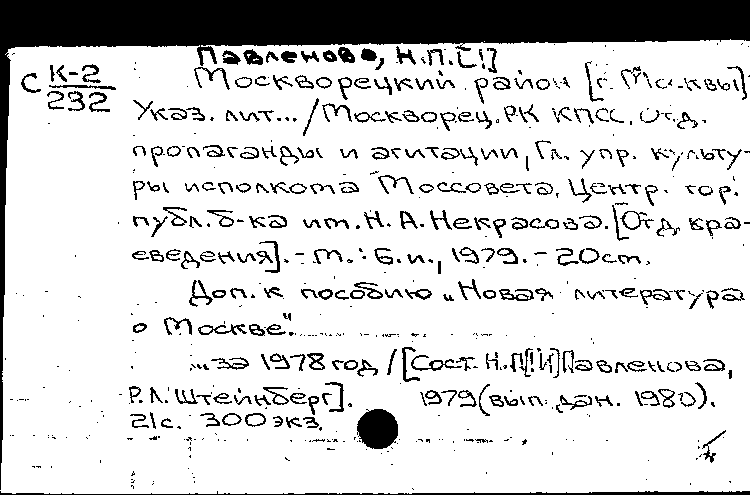 Павленова, Н.П.[!]
С К-2
232
Москворецкий район [г. Москвы]
Указ. лит... / Москворец. РК КПСС, Отд.
пропаганды и агитации, Гл. упр. культу-
ры исполкома Моссовета, Центр. гор.
публ. б-ка им. Н. А. Некрасова. [Отд. кра-
еведения]. - М. : Б. и., 1979. - 20 см.
Доп. к пособию „Новая литература
о Москве".
...за 1978 год / [Сост. Н.П[!] Павленова,
Р. Л. Штейнберг]. 1979 (вып. дан. 1980).
21 с. 300 экз.